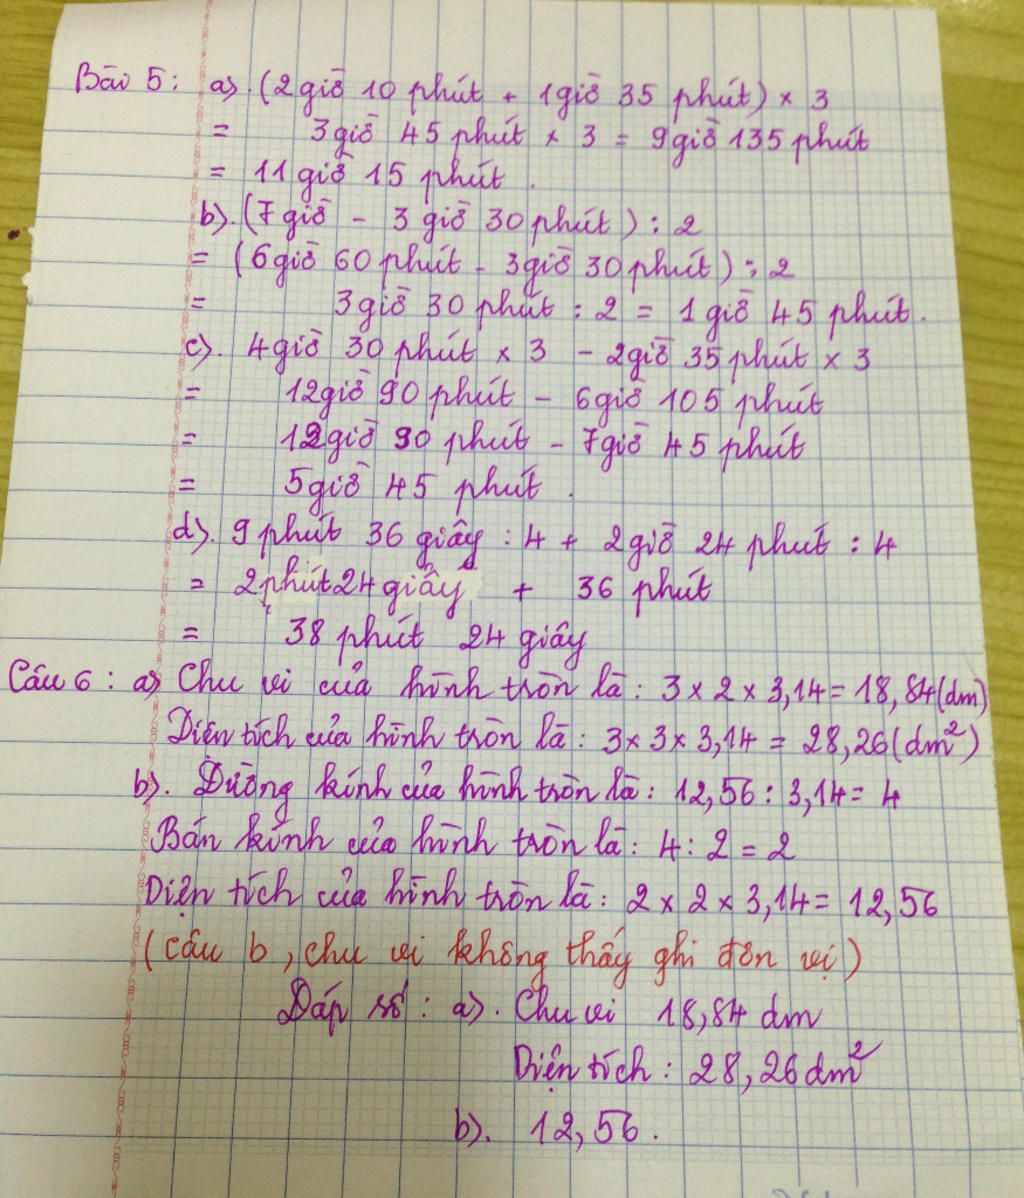 Bài 5: a). (2 giờ 10 phút + 1 giờ 35 phút) × 3
= 3 giờ 45 phút × 3 = 9 giờ 135 phút
= 11 giờ 15 phút.
b). (7 giờ - 3 giờ 30 phút) : 2
= (6 giờ 60 phút - 3 giờ 30 phút) : 2
= 3 giờ 30 phút : 2 = 1 giờ 45 phút.
c). 4 giờ 30 phút × 3 - 2 giờ 35 phút × 3
= 12 giờ 90 phút - 6 giờ 105 phút
= 12 giờ 90 phút - 7 giờ 45 phút
= 5 giờ 45 phút.
d). 9 phút 36 giây : 4 + 2 giờ 24 phút : 4
= 2 phút 24 giây + 36 phút
= 38 phút 24 giây
Câu 6 : a) Chu vi của hình tròn là : 3 × 2 × 3,14 = 18,84 (dm)
Diện tích của hình tròn là : 3 × 3 × 3,14 = 28,26 (dm²)
b). Đường kính của hình tròn là : 12,56 : 3,14 = 4
Bán kính của hình tròn là : 4 : 2 = 2
Diện tích của hình tròn là : 2 × 2 × 3,14 = 12,56
(câu b, chu vi không thấy ghi đơn vị)
Đáp số : a). Chu vi 18,84 dm
Diện tích : 28,26 dm²
b). 12,56.